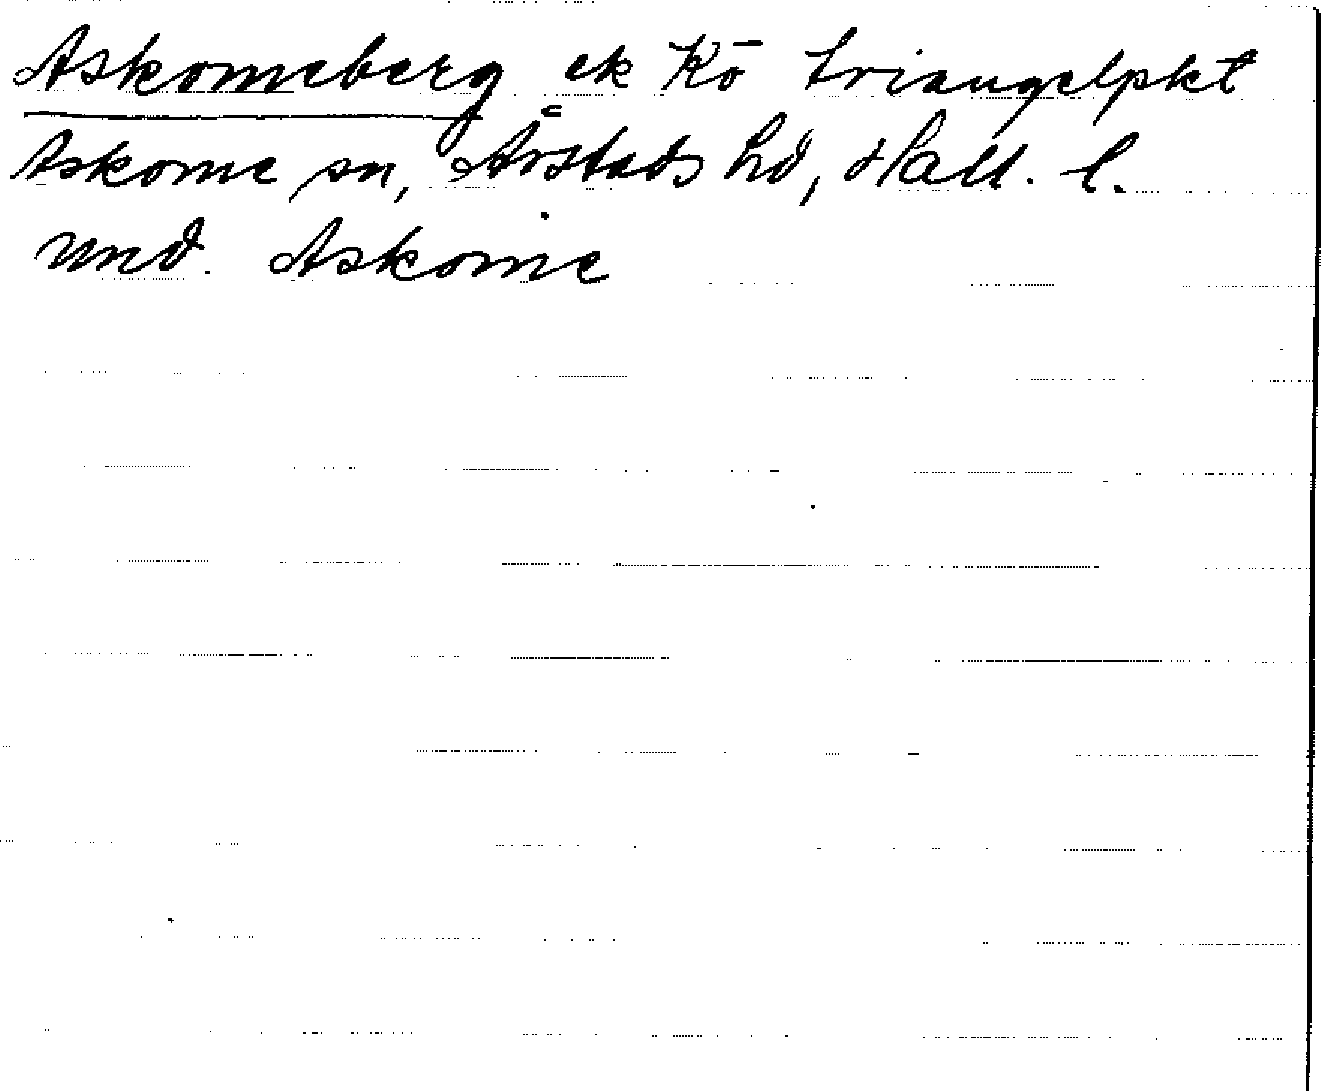 Askomeberg ek Kō triangelpkt
Askome sn, Årstads hd, Hall. l.
und. Askome